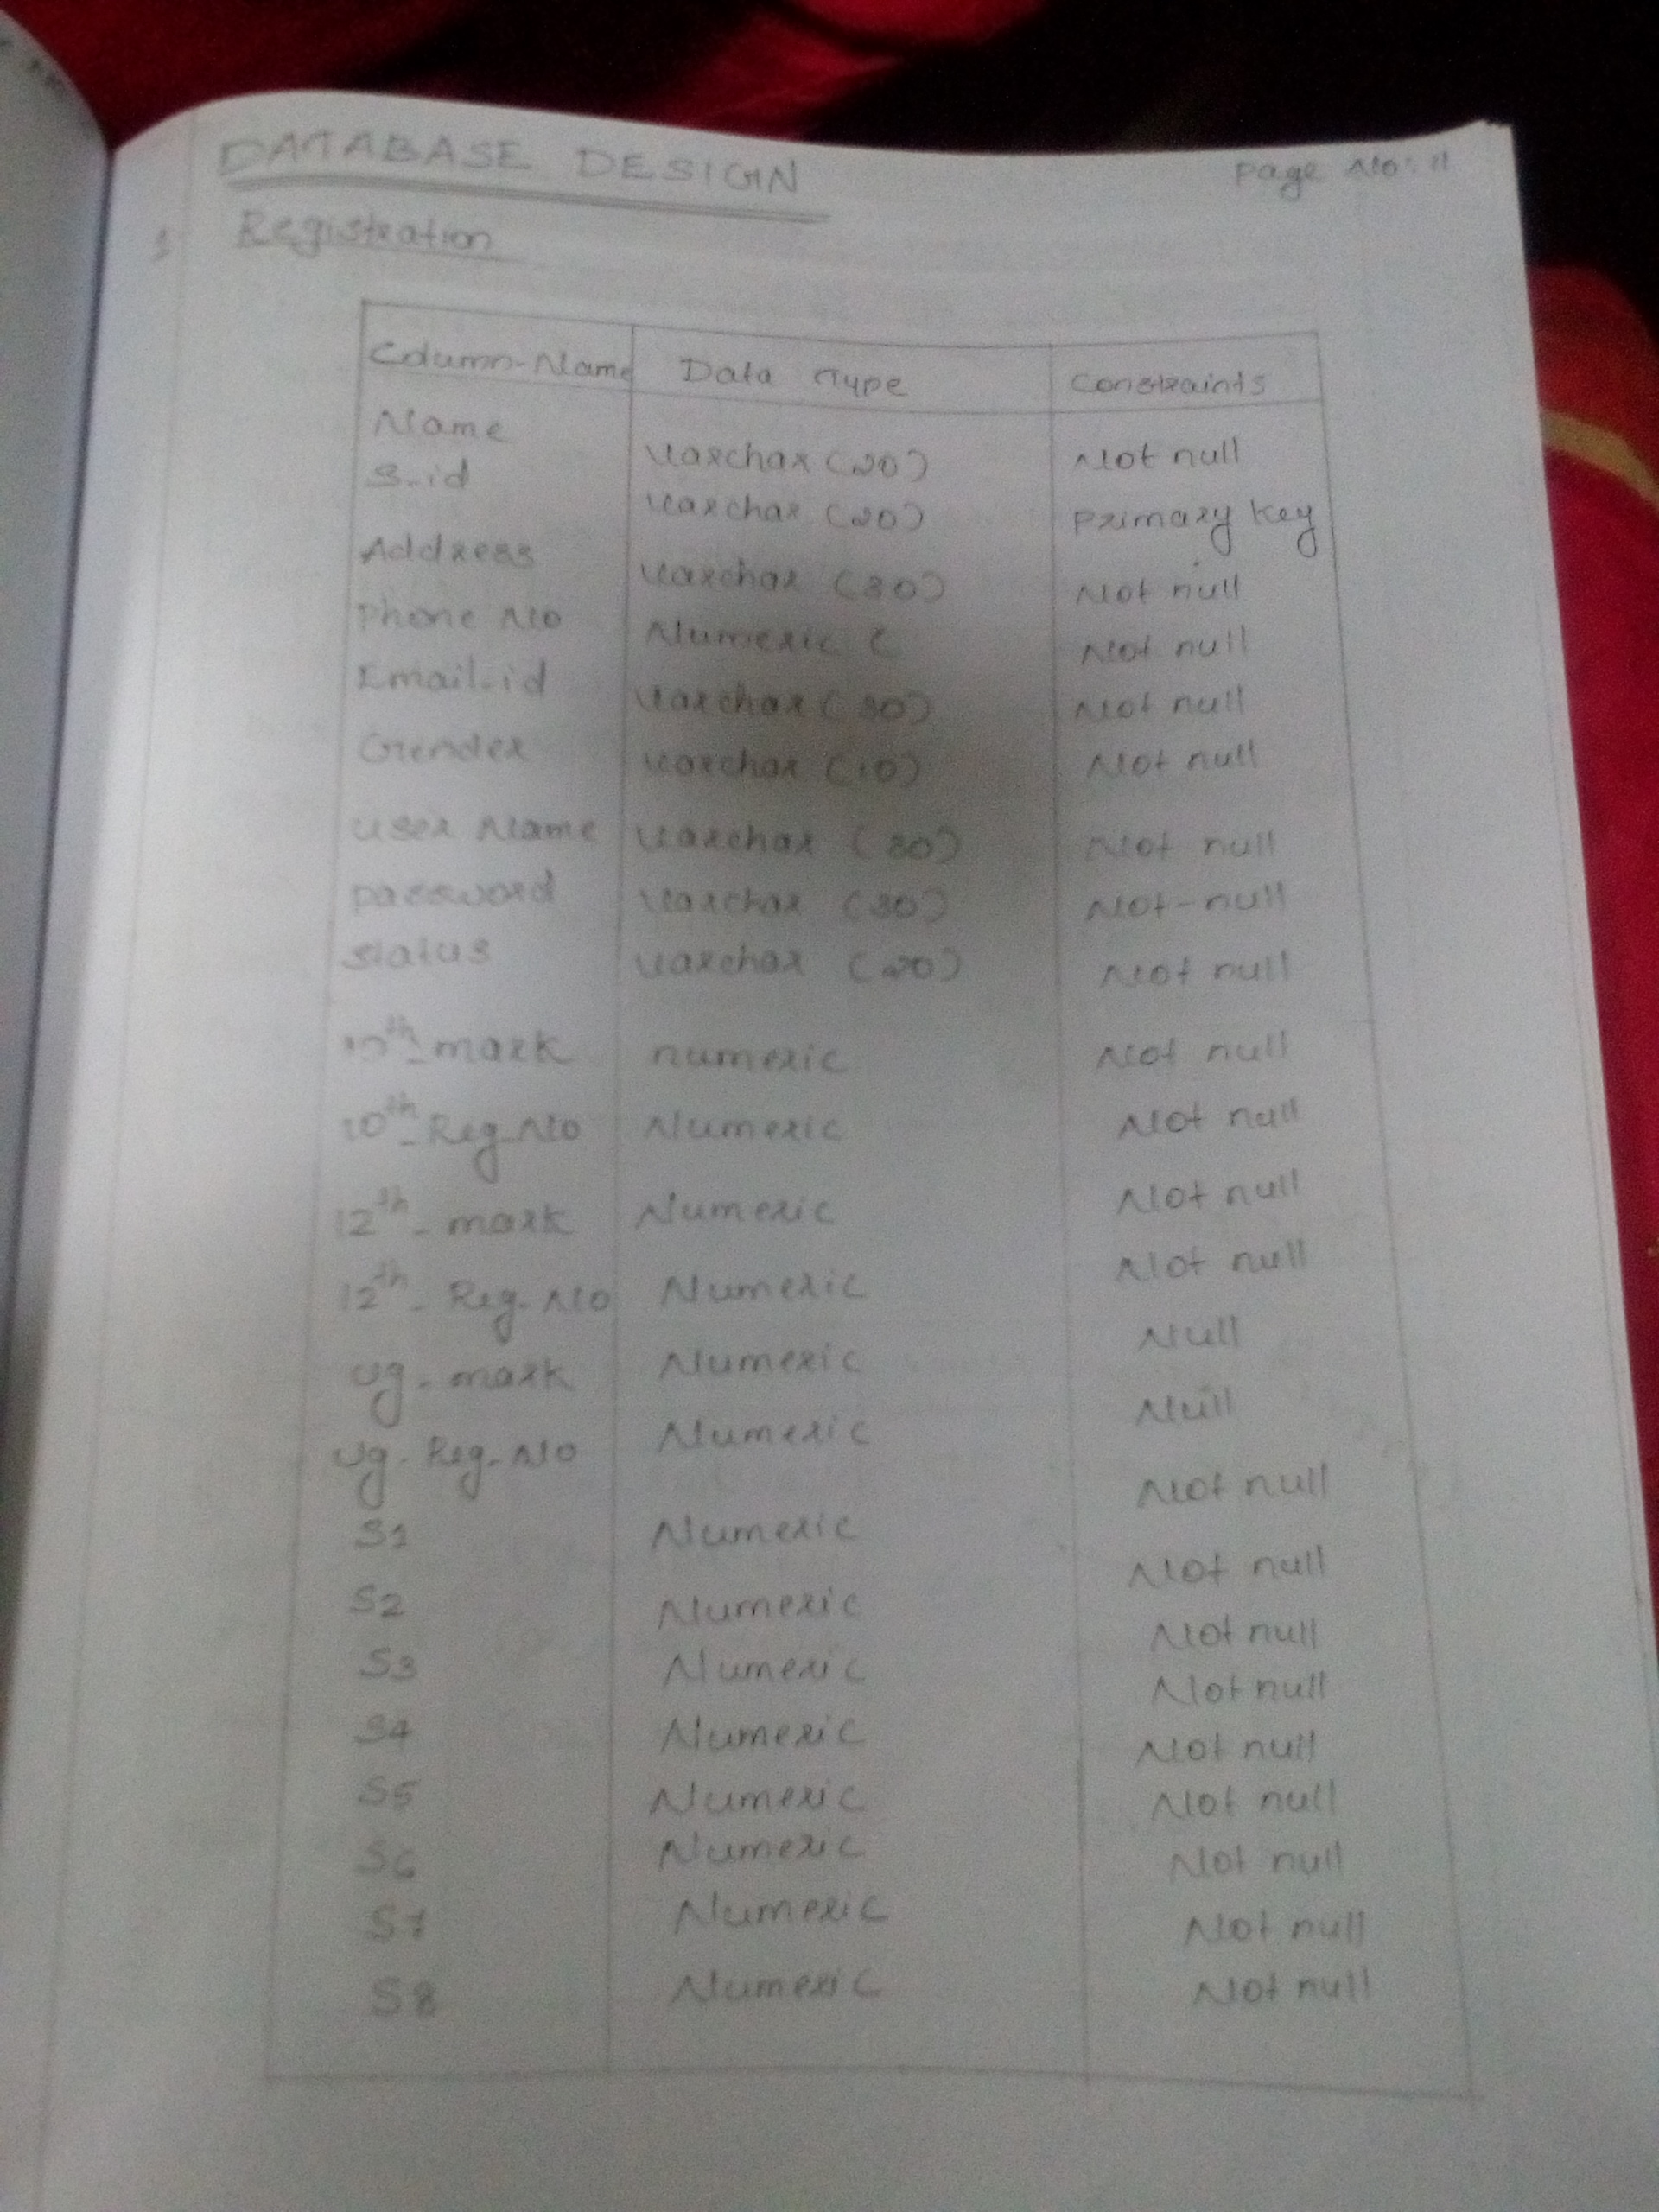 DATABASE DESIGN Page No: 11
1 Registration
Column-Name Data Type Constraints
Name Varchar (20) Not null
S-id Varchar (20) Primary Key
Address Varchar (30) Not null
Phone No Numeric ( Not null
Email-id Varchar (30) Not null
Gender Varchar (10) Not null
User Name Varchar (30) Not null
password Varchar (30) Not-null
status Varchar (20) Not null
10th-mark numeric Not null
10th-Reg-No Numeric Not null
12th-mark Numeric Not null
12th-Reg-No Numeric Not null
Ug-mark Numeric Null
Ug-Reg-No Numeric Null
S1 Numeric Not null
S2 Numeric Not null
S3 Numeric Not null
S4 Numeric Not null
S5 Numeric Not null
S6 Numeric Not null
S7 Numeric Not null
S8 Numeric Not null